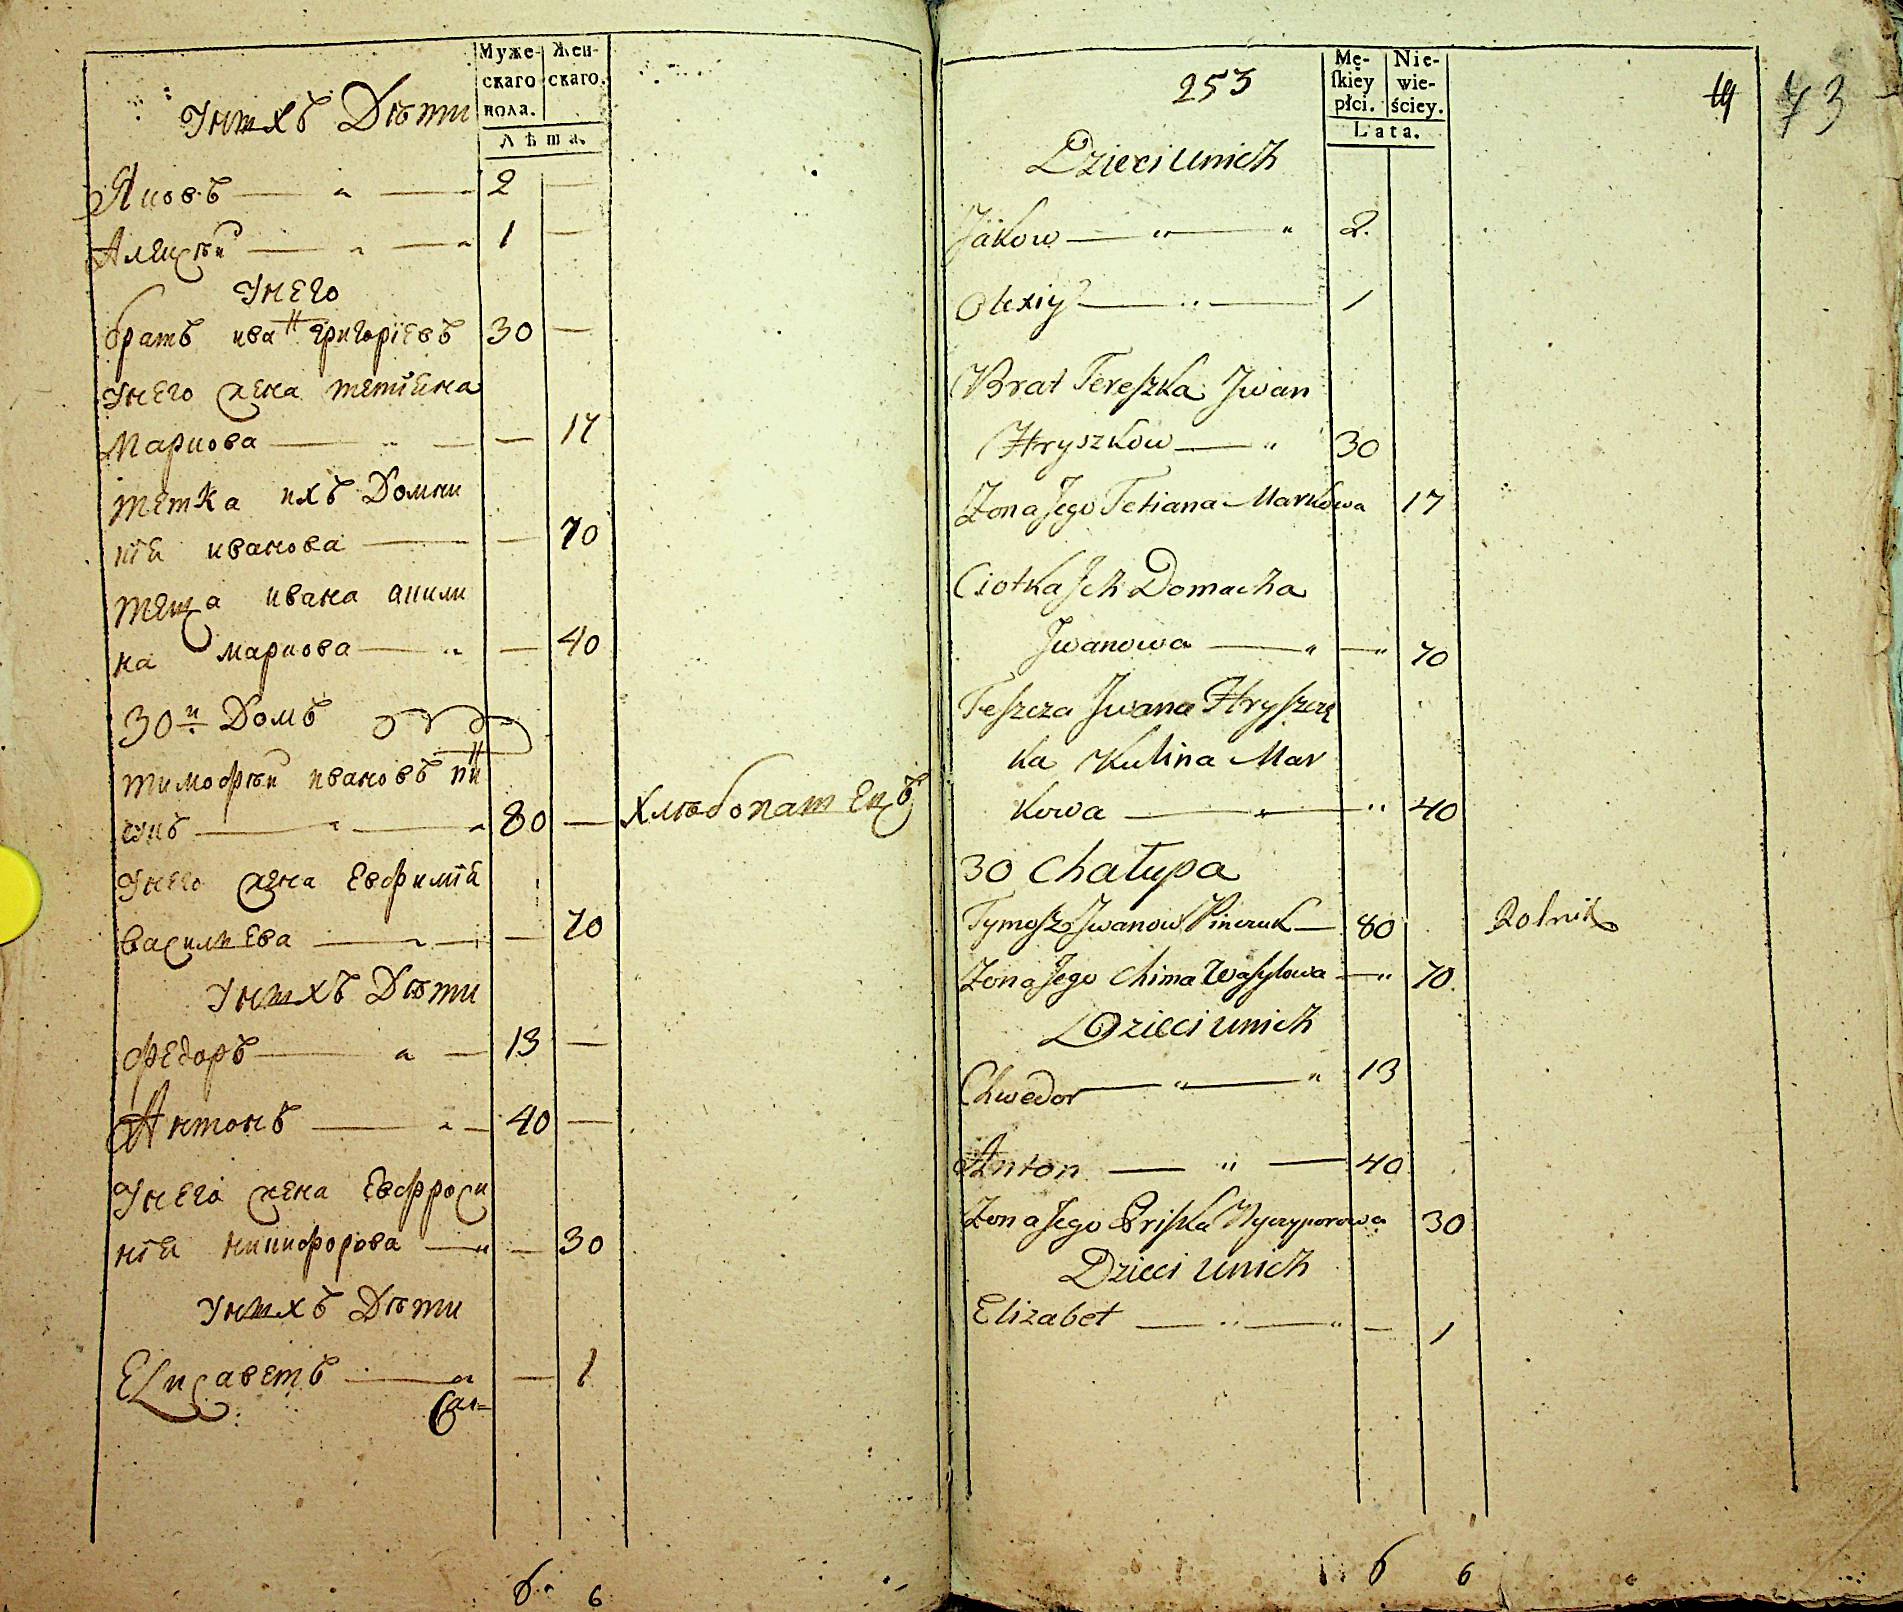 Муже-
скаго
пола.
Жен-
скаго.
Лѣта.
Унихъ Дѣти
Яковъ — " — 2 —
Алеѯѣй — " — " 1 —
Унего
братъ иванъ григоріевъ 30 —
Унего жена тетіяна
Маркова — " — — 17
тетка ихъ Домни
кія иванова — — 70
теща ивана акили
на маркова — " — 40
30й Домъ
тимофѣй ивановъ пин
чукъ — " — " 80 — Хлѣбопашецъ
Унего жена Евфимія
василиева — " — — 70
Унихъ Дѣти
федоръ — " — 13 —
Антонъ — " — 40 —
Унего жена Евфроси
нія никифорова — " — 30
Унихъ Дѣти
Елисаветъ — " — 1
253
Mę-
ſkiey
płci.
Nie-
wie-
ściey.
Lata.
19 73
Dzieci unich
Jakow — " — " 2.
Olexiy — " — 1
Brat Tereszka Jwan
Hryszkow — " 30
Zona Jego Tetiana Markowa 17
Ciotka Jch Domacha
Jwanowa — " — " 70
Teszcza Jwana Hryszcz
ka Kulina Mar
kowa — " — " 40
30 Chałupa
Tymosz Jwanow Pinczuk — 80 Rolnik
Zona Jego Chima Wasylowa — " 70
Dzieci unich
Chwedor — " — " 13
Anton — " — 40
Zona Jego Priska Nyczyporowa 30
Dzieci unich
Elizabet — " — " — 1
6 6
6 6